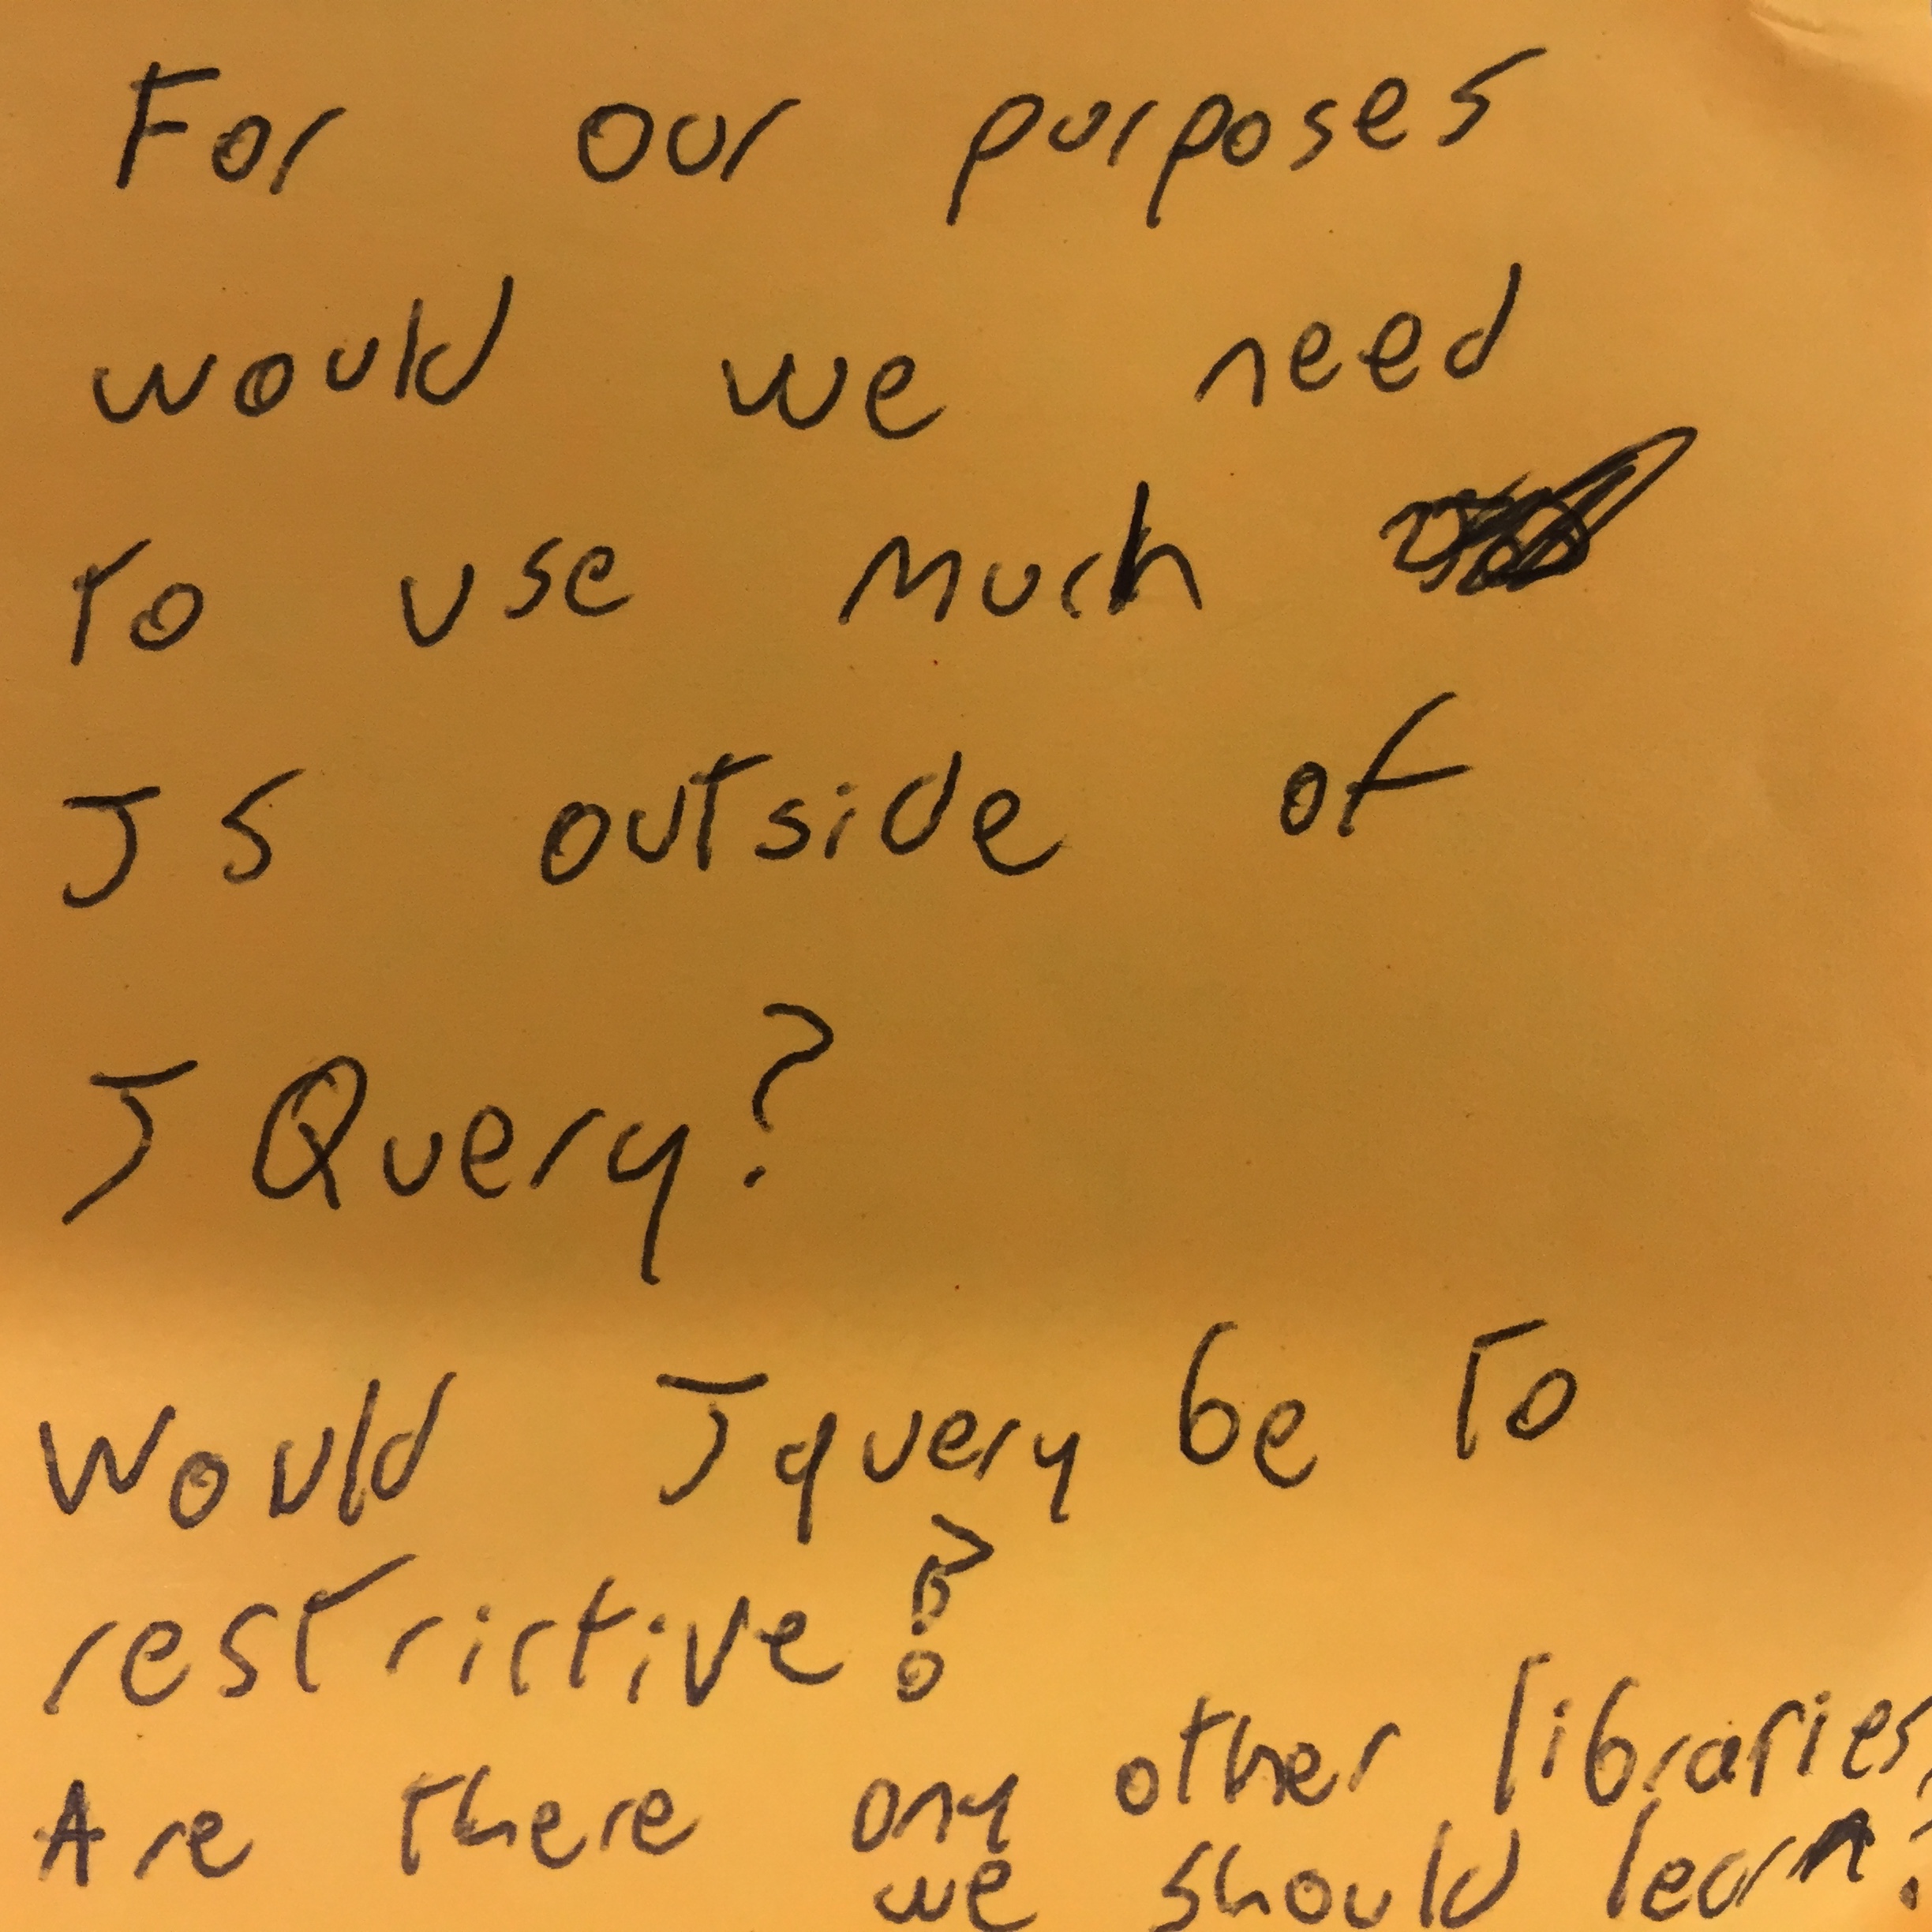 For our purposes
would we need
To use much
JS outside of
JQuery?
Would Jquery be To
restrictive?
Are there any other libraries,
we should learn?